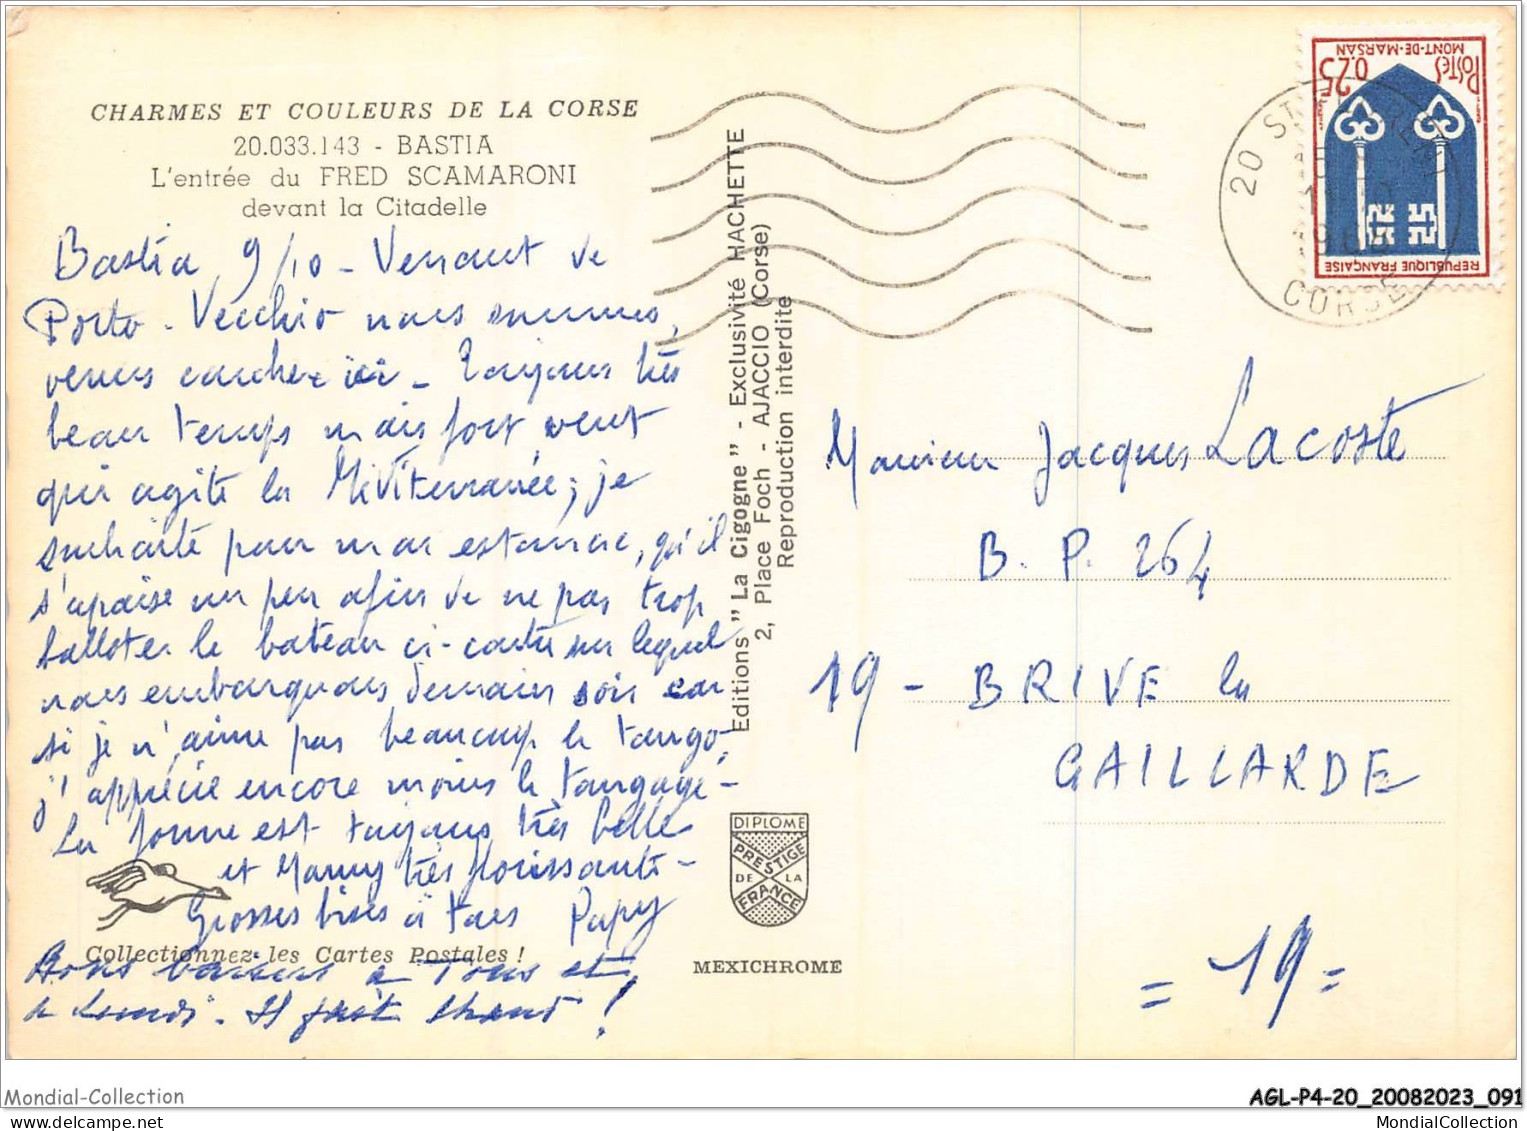 CHARMES ET COULEURS DE LA CORSE
20.033.143 - BASTIA
L'entrée du FRED SCAMARONI
devant la Citadelle
Bastia, 9/10 - Venant de
Porto-Vecchio nous sommes
venus coucher ici - Toujours très
beau temps mais fort vent
qui agite la Méditerranée; je
souhaite pour mon estomac, qu'il
s'apaise un peu afin de ne pas trop
balloter le bateau ci-contre sur lequel
nous embarquons demain soir car
si je n'aime pas beaucoup le tango,
j'apprécie encore moins le tangage -
La forme est toujours très belle
et Mamy très florissante -
Grosses bises à tous Papy
Collectionnez les Cartes Postales !
Bons baisers à Tous et
à Lundi. Il fait chaud !
Editions "La Cigogne" - Exclusivité HACHETTE
2, Place Foch - AJACCIO (Corse)
Reproduction interdite
DIPLOME
PRESTIGE
DE LA
FRANCE
MEXICHROME
POSTES 0,25
MONT-DE-MARSAN
REPUBLIQUE FRANÇAISE
20 ST
CORSE
Monsieur Jacques Lacoste
B. P. 264
19 - BRIVE la
GAILLARDE
= 19 =
Mondial-Collection
AGL-P4-20_20082023_091
MondialCollection